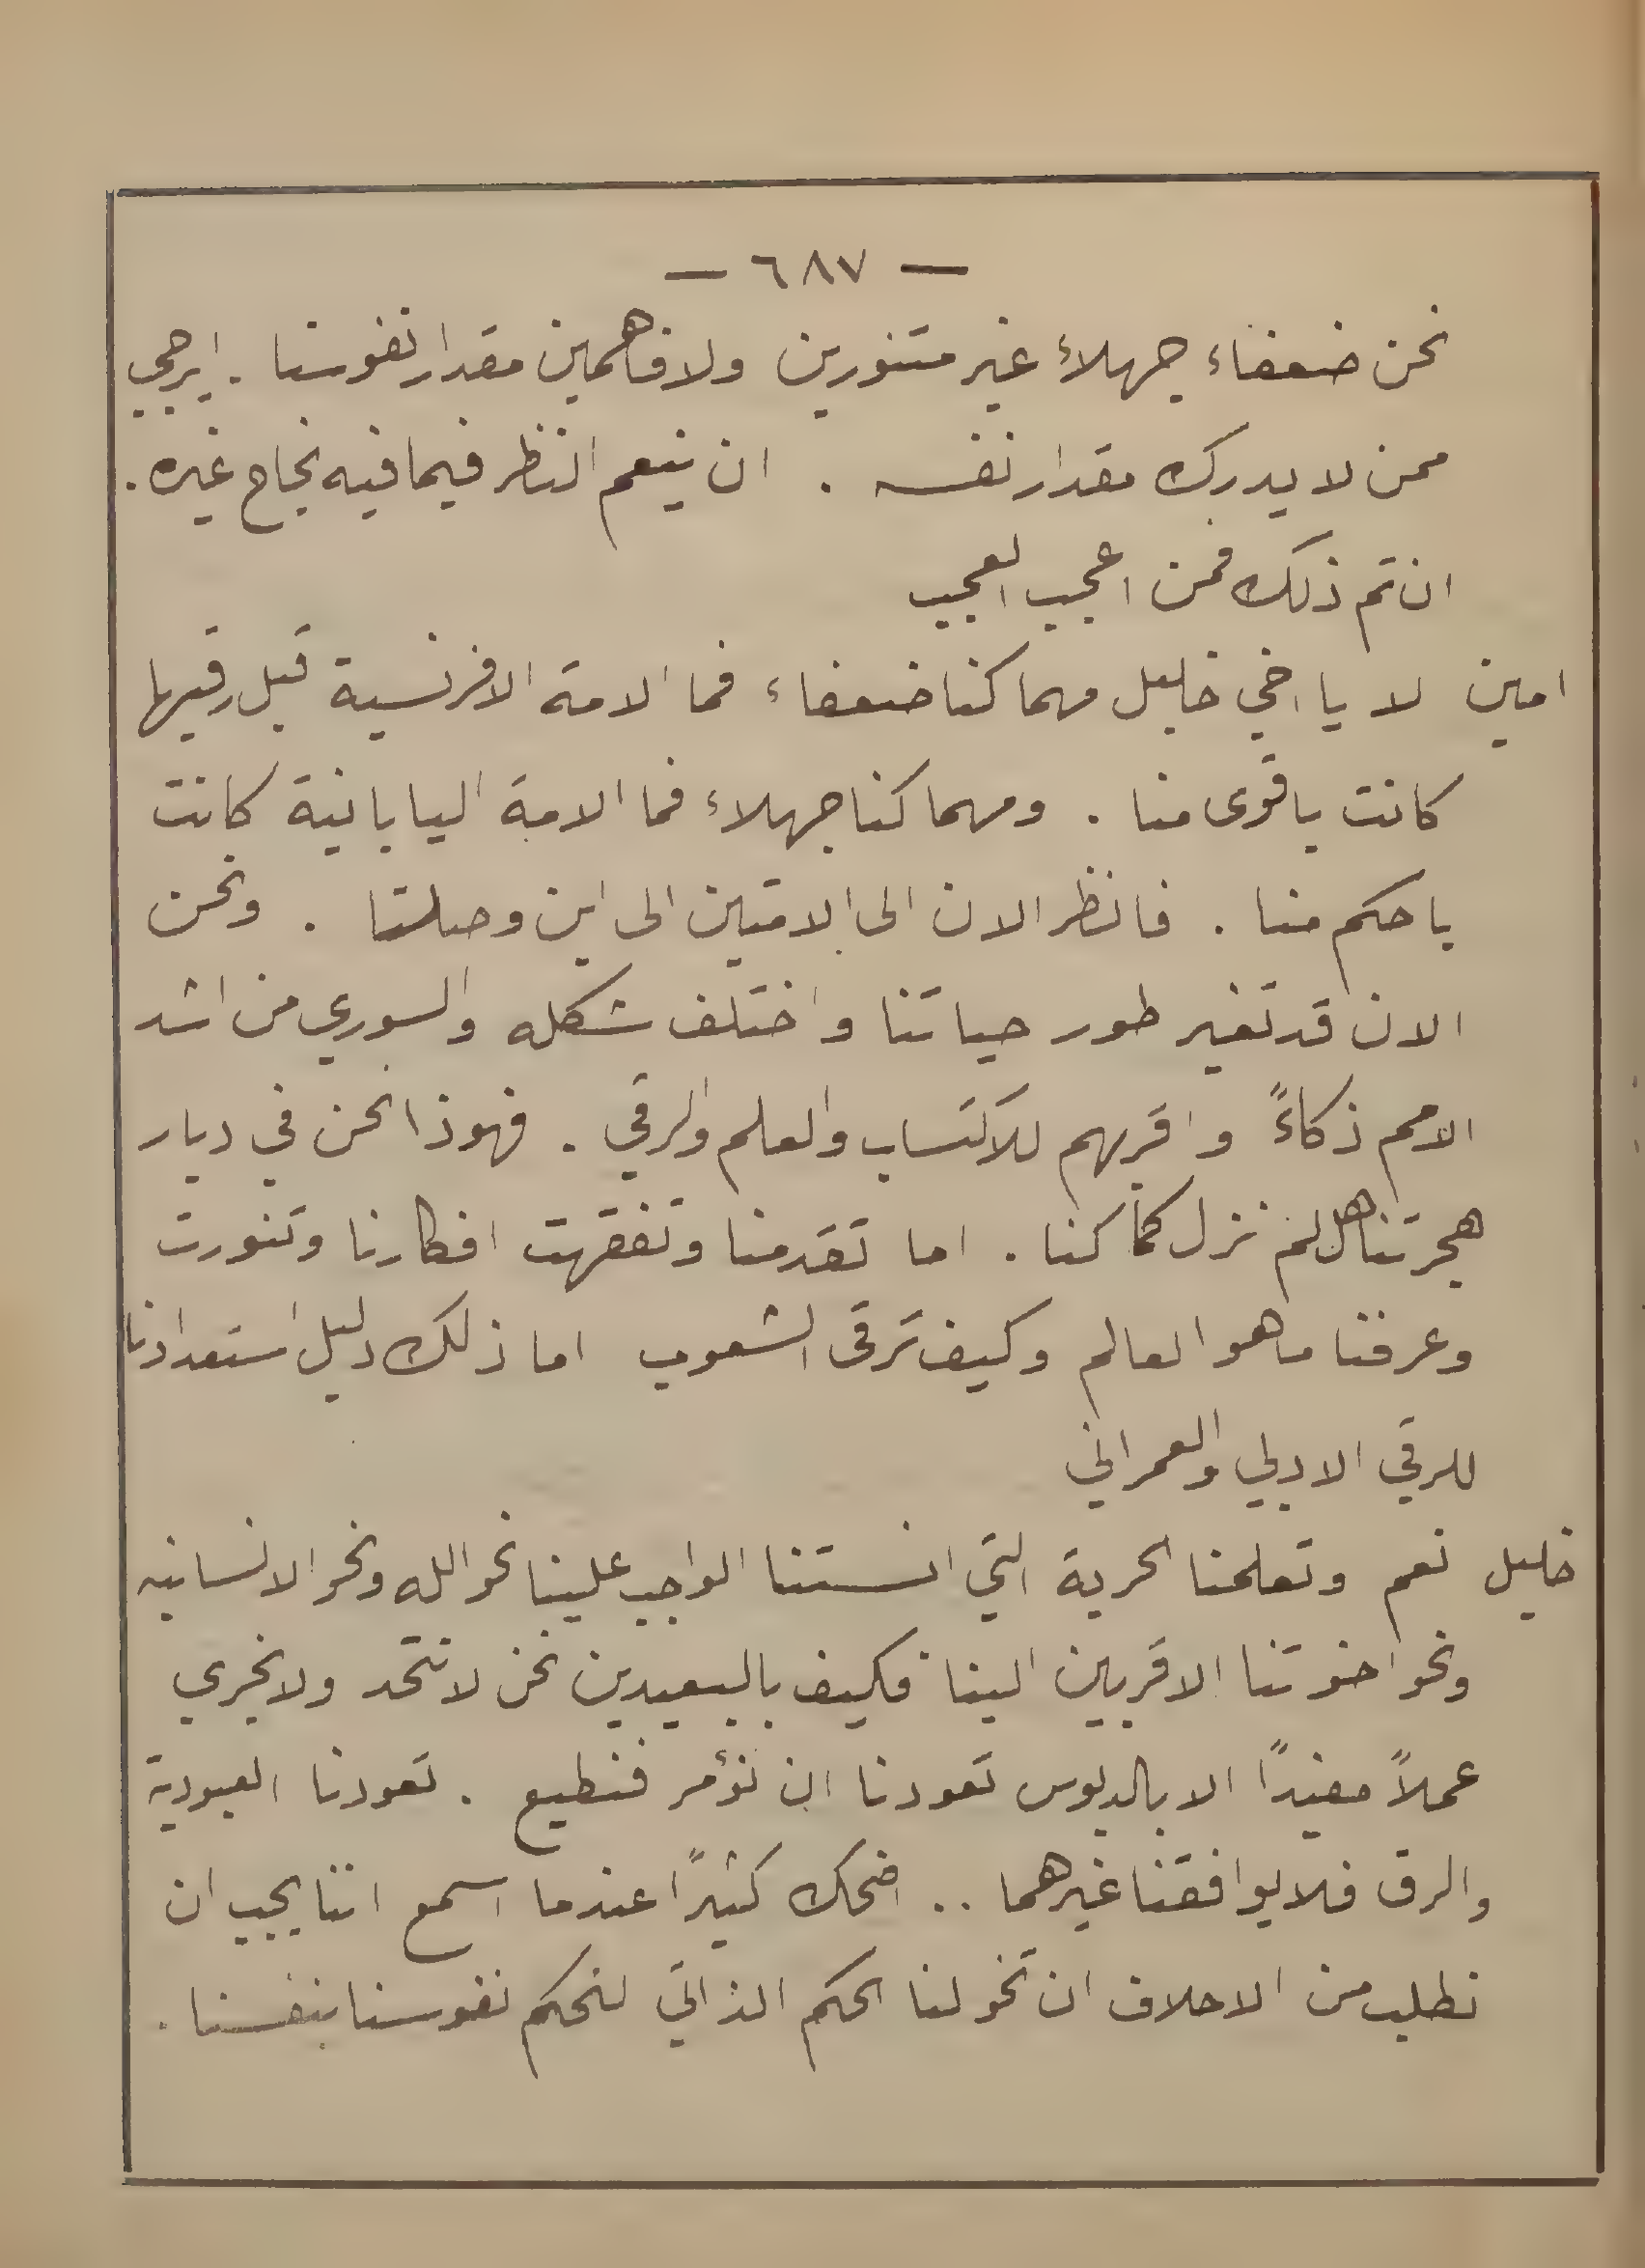 — ٦٨٧ —
نحن ضعفاء جهلاء غير متنورين ولا فاهمين مقدار نفوسنا . ايرجي
ممن لا يدرك مقدار نفسه . ان ينعم النظر فيما فيه نجاح غيره .
ان تم ذلك فمن اعجب العجب
امين لا يا اخي خليل مهما كنا ضعفاء فما الامة الافرنسية قبل رقيها
كانت باقوى منا . ومهما كنا جهلاء فما الامة اليابانية كانت
باحكم منا . فانظر الان الى الامتين الى اين وصلتا . ونحن
الان قد تغير طور حياتنا واختلف شكله والسوري من اشد
الامم ذكاءً واقربهم للاكتساب والعلم والرقي . فهوذا نحن في ديار
هجرتنا هل لم نزل كما كنا . اما تقدمنا وتفقهت افكارنا وتنورت
وعرفنا ما هو العالم وكيف ترقى الشعوب اما ذلك دليل استعدادنا
للرقي الادبي والعمراني
خليل نعم وتعلمنا الحرية التي انستنا الواجب علينا نحو الله ونحو الانسانيه
ونحو اخوتنا الاقربين الينا فكيف بالبعيدين نحن لا نتحد ولا نجري
عملاً مفيدًا الا بالدبوس تعودنا ان نؤمر فنطيع . تعودنا العبودية
والرق فلا يوافقنا غيرهما .. اضحك كثيرًا عندما اسمع اننا يجب ان
نطلب من الاحلاف ان تخولنا الحكم الذاتي لنحكم نفوسنا بنفسنا .